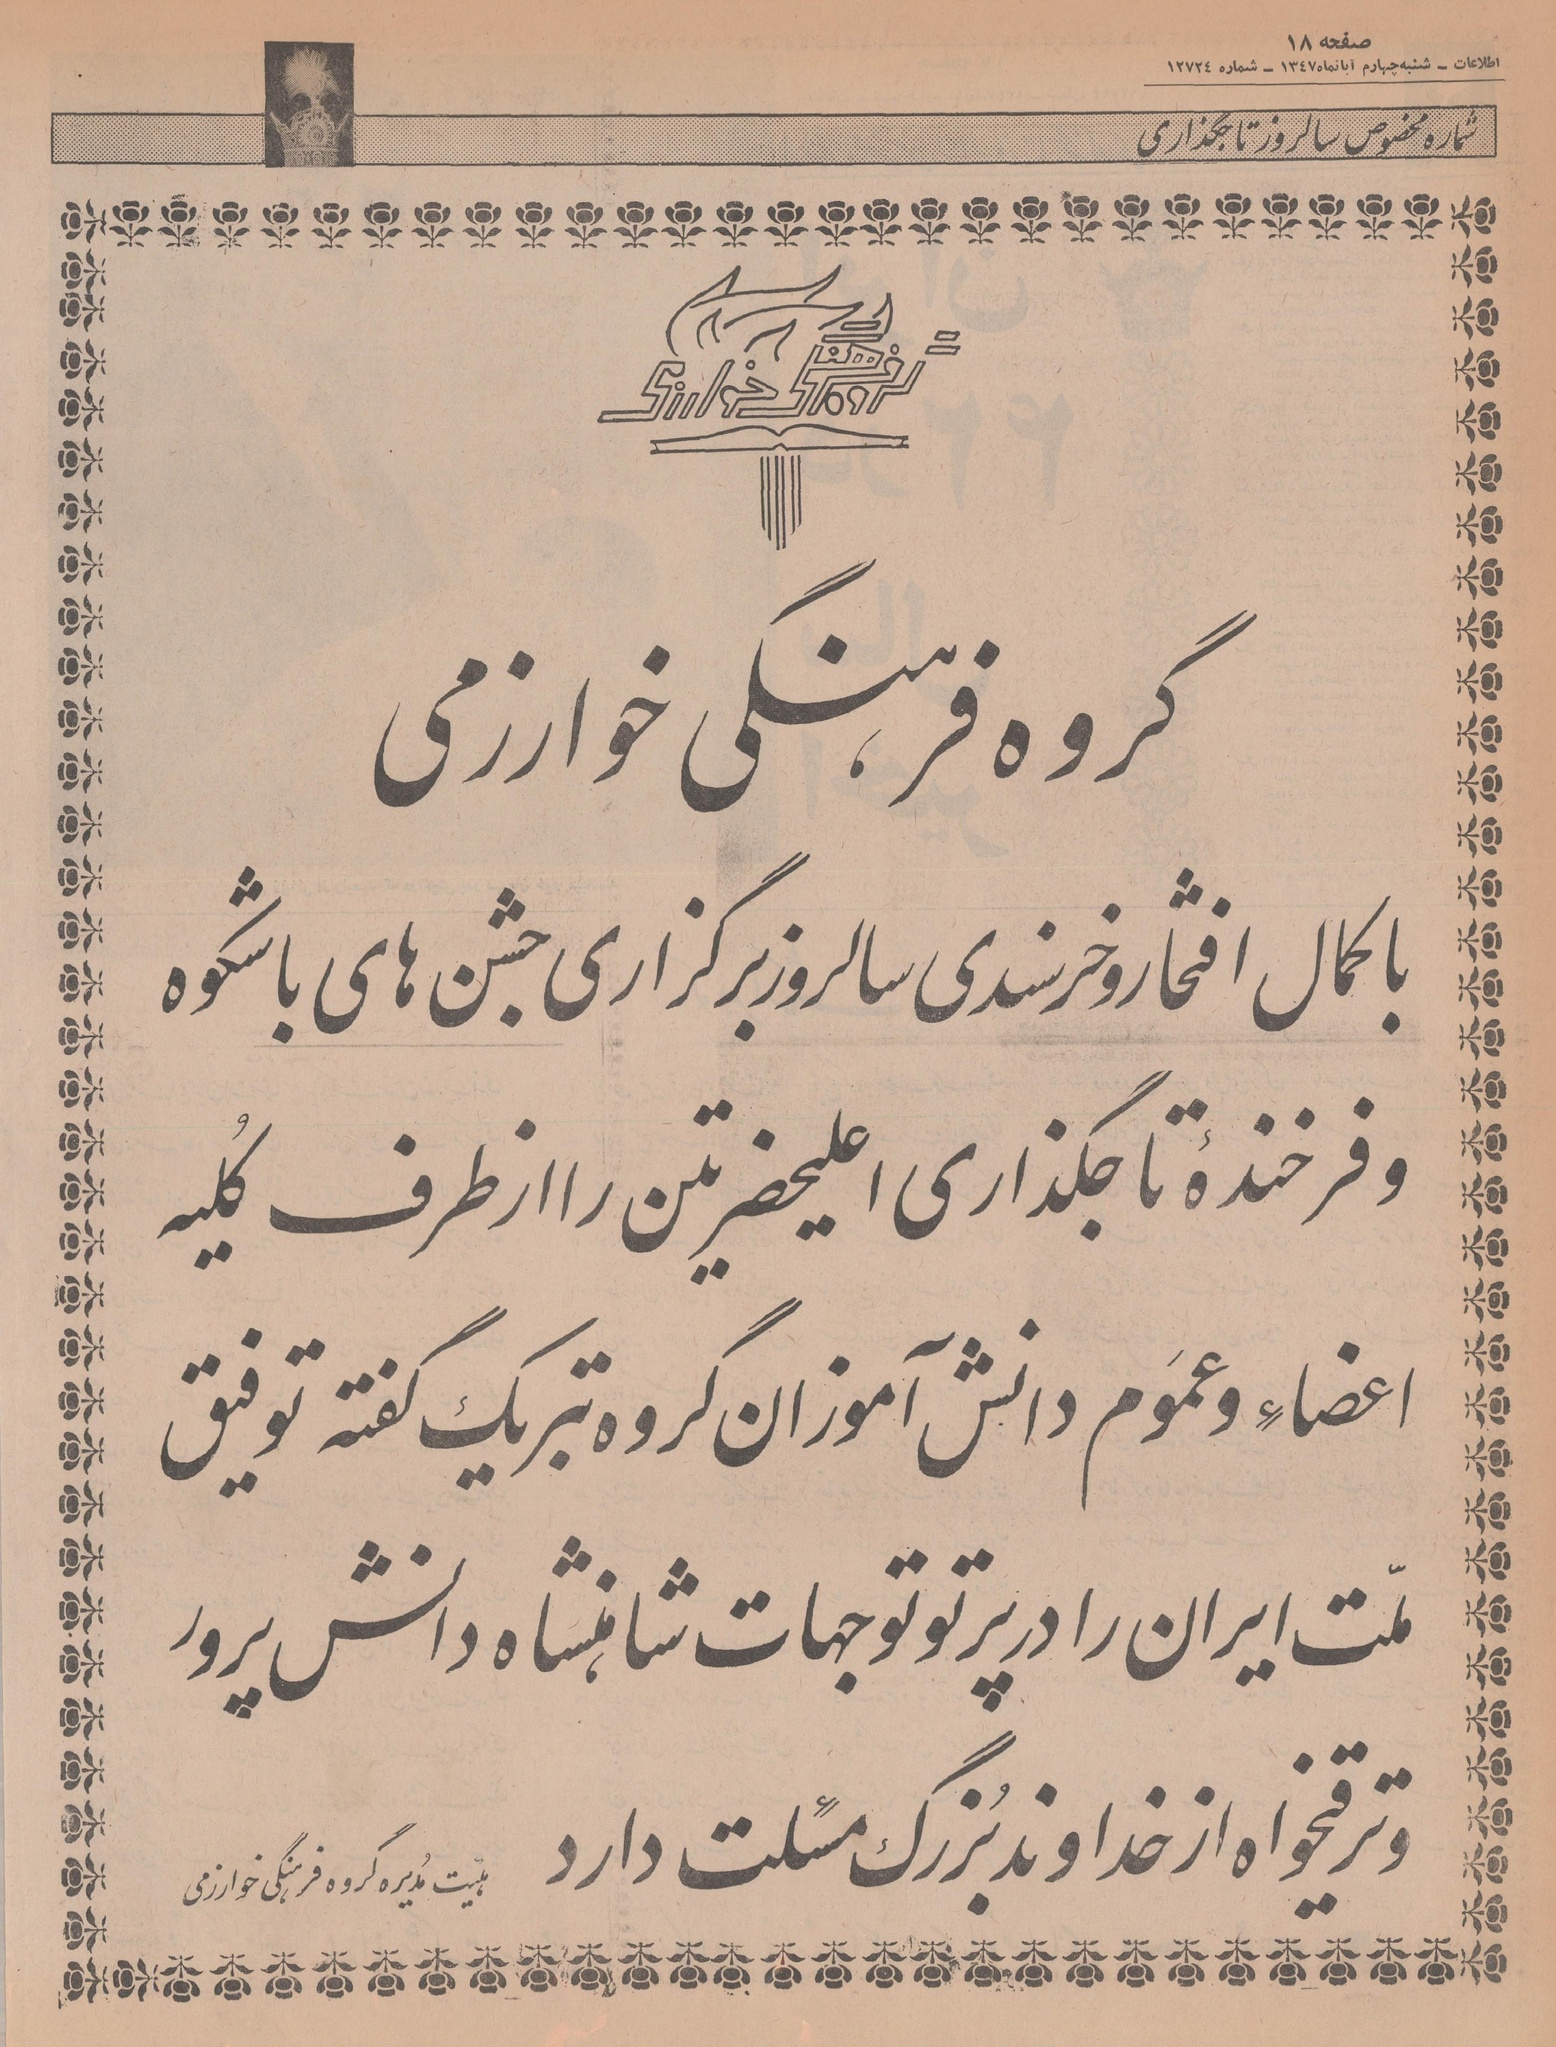 صفحه ۱۸
اطلاعات – شنبه چهارم آبانماه ۱۳۴۷ – شماره ۱۲۷۲۴
شماره مخصوص سالروز تاجگذاری
گروه فرهنگی خوارزمی
گروه فرهنگی خوارزمی
با کمال افتخار و خرسندی سالروز برگزاری جشن های با شکوه
و فرخندهٔ تاجگذاری اعلیحضرتین را از طرف کُلیه
اعضاءِ و عمَوم دانش آموزان گروه تبریک گفته توفیق
ملّت ایران را در پرتو توجهات شاهنشاه دانش پرور
و ترقیخواه از خداوند بُزرگ مسئلت دارد
هیئت مُدیره گروه فرهنگی خوارزمی